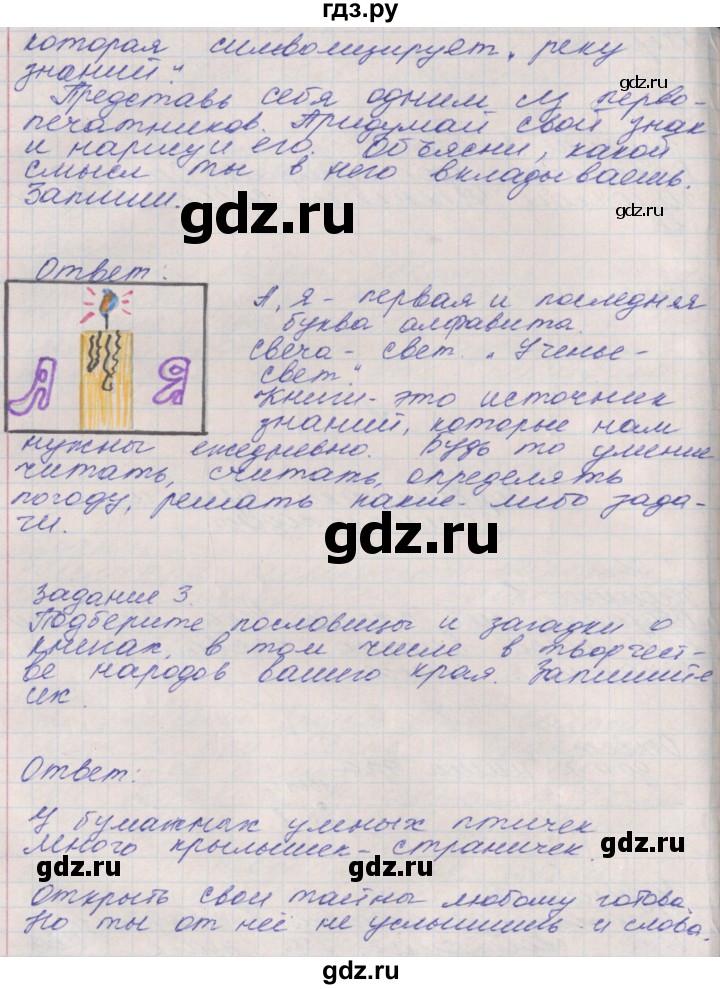 гдз.ру
которая символизирует „реку
знаний".
Представь себя одним из перво-
печатников. Придумай свой знак
и нарисуй его. Объясни, какой
смысл ты в него вкладываешь.
Запиши.
gdz.ru
gdz.ru
gdz.ru
Ответ:
А, я - первая и последняя
буква алфавита.
свеча - свет. „Ученье -
свет".
Книги - это источник
знаний, которые нам
нужны ежедневно. Будь то умение
читать, считать, определять
погоду, решать какие-либо зада-
чи.
А Я
gdz.ru
Задание 3.
Подберите пословицы и загадки о
книгах, в том числе в творчест-
ве народов вашего края. Запишите
их.
Ответ:
У бумажных умных птичек
Много крылышек - страничек.
gdz.ru
gdz.ru
gdz.ru
Открыть свои тайны любому готова.
Но ты от неё не услышишь и слова.
gdz.ru